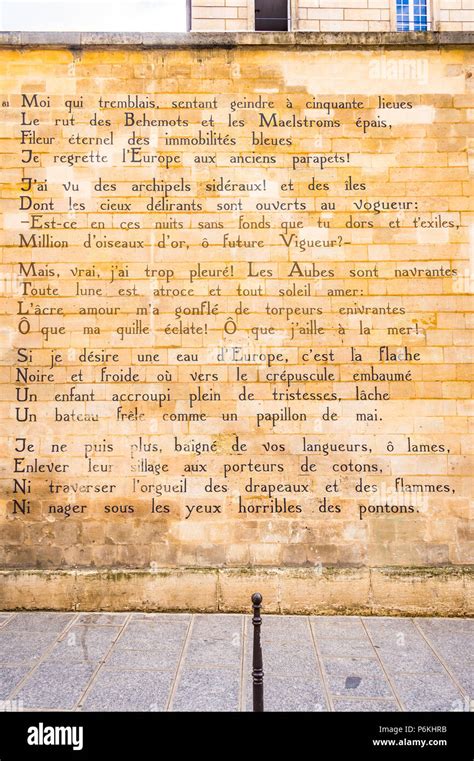 81 Moi qui tremblais, sentant geindre à cinquante lieues
Le rut des Behemots et les Maelstroms épais,
Fileur éternel des immobilités bleues
Je regrette l'Europe aux anciens parapets!
J'ai vu des archipels sidéraux! et des îles
Dont les cieux délirants sont ouverts au vogueur:
-Est-ce en ces nuits sans fonds que tu dors et t'exiles,
Million d'oiseaux d'or, ô future Vigueur?-
Mais, vrai, j'ai trop pleuré! Les Aubes sont navrantes
Toute lune est atroce et tout soleil amer:
L'âcre amour m'a gonflé de torpeurs enivrantes
Ô que ma quille éclate! Ô que j'aille à la mer!
Si je désire une eau d'Europe, c'est la flache
Noire et froide où vers le crépuscule embaumé
Un enfant accroupi plein de tristesses, lâche
Un bateau frêle comme un papillon de mai.
Je ne puis plus, baigné de vos langueurs, ô lames,
Enlever leur sillage aux porteurs de cotons,
Ni traverser l'orgueil des drapeaux et des flammes,
Ni nager sous les yeux horribles des pontons.
alamy
a
alamy
Image ID: P6KHRB
www.alamy.com